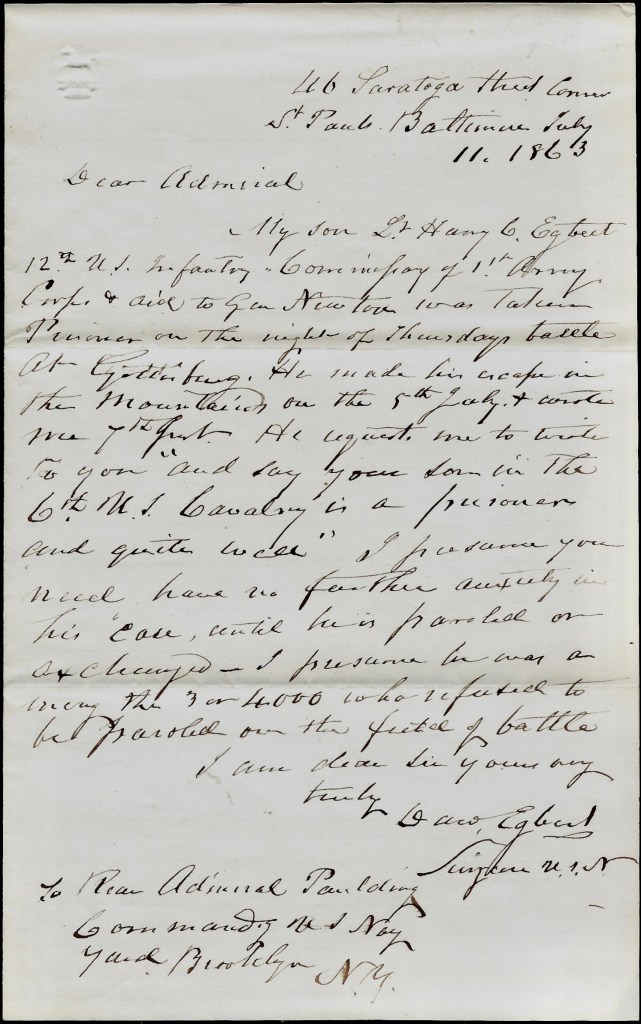 46 Saratoga Street Corner
St Pauls. Baltimore July
11. 1863
Dear Admiral
My son Lt Harry C. Egbert
12th U.S. Infantry - Commissary of 1st Army
Corps & aid to Gen Newton was taken
Prisoner on the night of Thursdays battle
at Gettisburg. He made his escape in
the Mountains on the 5th July. & wrote
me 7th Inst. He requests me to write
to you "and say your son in the
6th U.S. Cavalry is a prisoner
and quite well" I presume you
need have no further anxiety in
his case, until he is paroled or
exchanged - I presume he was a
mong the 3 or 4000 who refused to
be paroled on the field of battle
I am dear Sir Yours very
truly
Danl Egbert
Surgeon U.S.N
To Rear Admiral Paulding
Commandg U S Navy
Yard Brooklyn N.Y.